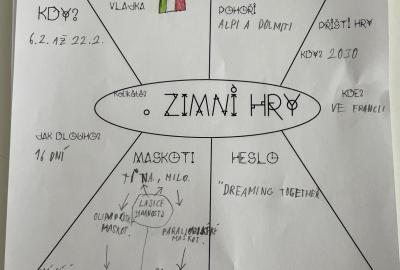 KDY?
6.2. AŽ 22.2.
VLAJKA
POHOŘÍ
ALPI A DOLOMITI
PŘÍŠTÍ HRY
KDY? 2030
KDE?
VE FRANCII
Kolikáté?
ZIMNÍ HRY
JAK DLOUHO?
16 DNÍ
MASKOTI
TINA, MILO.
LASICE
HRANOSTAJ
MASKOT.
MASKOT.
HESLO
"DREAMING TOGETHER